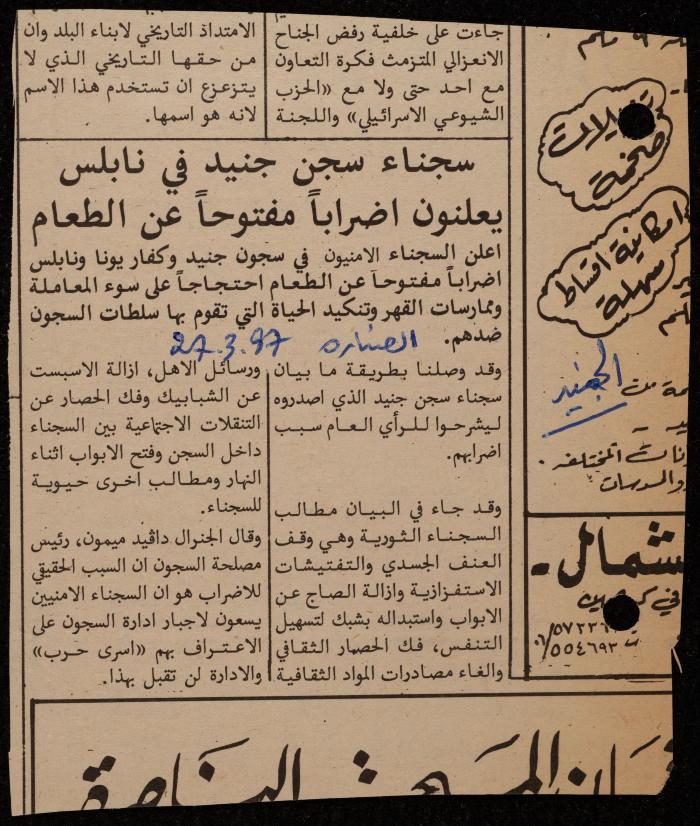 جاءت على خلفية رفض الجناح
الانعزالي المتزمت فكرة التعاون
مع احد حتى ولا مع «الحزب
الشيوعي الاسرائيلي» واللجنة
الامتداد التاريخي لابناء البلد وان
من حقها التاريخي الذي لا
يتزعزع ان تستخدم هذا الاسم
لانه هو اسمها.
سجناء سجن جنيد في نابلس
يعلنون اضراباً مفتوحاً عن الطعام
اعلن السجناء الامنيون في سجون جنيد وكفار يونا ونابلس
اضراباً مفتوحاً عن الطعام احتجاجاً على سوء المعاملة
وممارسات القهر وتنكيد الحياة التي تقوم بها سلطات السجون
ضدهم.
الصنارة 27.3.87
وقد وصلنا بطريقة ما بيان
سجناء سجن جنيد الذي اصدروه
ليشرحوا للرأي العام سبب
اضرابهم.
وقد جاء في البيان مطالب
السجناء الثورية وهي وقف
العنف الجسدي والتفتيشات
الاستفزازية وازالة الصاج عن
الابواب واستبداله بشبك لتسهيل
التنفس، فك الحصار الثقافي
والغاء مصادرات المواد الثقافية
ورسائل الاهل، ازالة الاسبست
عن الشبابيك وفك الحصار عن
التنقلات الاجتماعية بين السجناء
داخل السجن وفتح الابواب اثناء
النهار ومطالب اخرى حيوية
للسجناء.
وقال الجنرال داڤيد ميمون، رئيس
مصلحة السجون ان السبب الحقيقي
للاضراب هو ان السجناء الامنيين
يسعون لاجبار ادارة السجون على
الاعتراف بهم «اسرى حرب»
والادارة لن تقبل بهذا.
ضخمة
امكانية اقساط
سهلة
الجنيد
المختلفة .
والمدرسات
شمال -
في